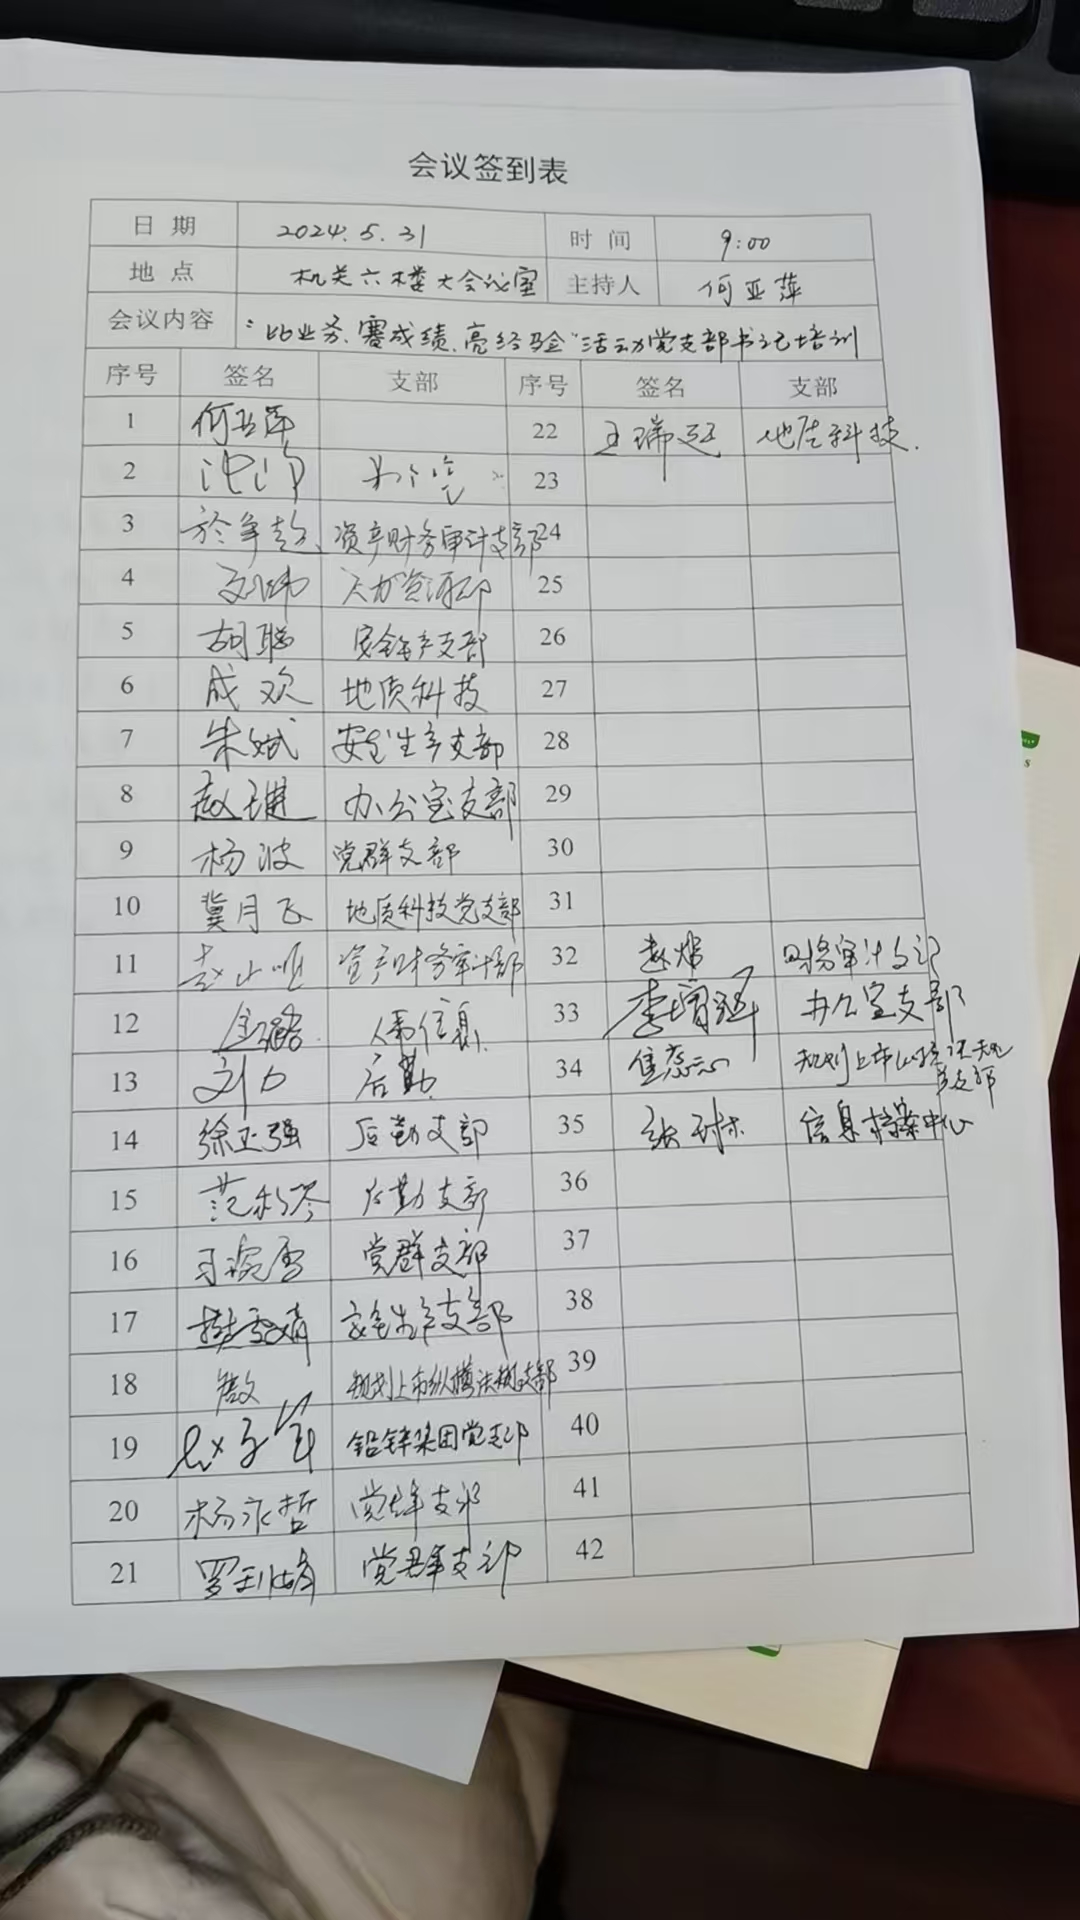 会议签到表
日期 2024.5.31 时间 9:00
地点 机关六楼大会议室 主持人 何亚萍
会议内容 "比业务、赛成绩、亮经验"活动党支部书记培训
序号 签名 支部 序号 签名 支部
1 何亚萍 22 王瑞廷 地质科技.
2 23
3 资产财务审计支部 24
4 人力资源部 25
5 胡聪 安全生产支部 26
6 成欢 地质科技 27
7 朱斌 安全生产支部 28
8 赵琎 办公室支部 29
9 杨波 党群支部 30
10 冀月飞 地质科技党支部 31
11 资产财务审计部 32 财务审计支部
12 信息 33 办公室支部
13 刘力 后勤 34 焦蕊
14 徐正强 后勤支部 35 张琳 信息档案中心
15 后勤支部 36
16 党群支部 37
17 樊雪婧 安全生产支部 38
18 39
19 铅锌集团党支部 40
20 杨永哲 党群支部 41
21 党群支部 42